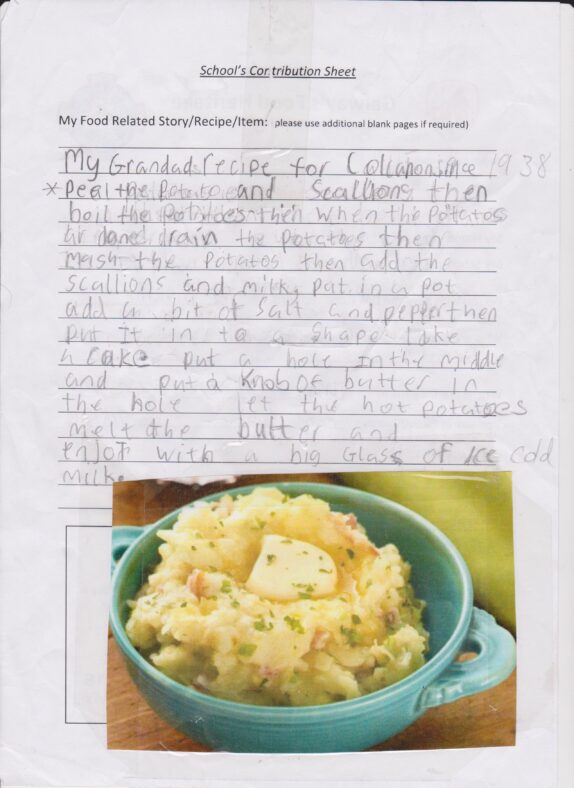 School's Contribution Sheet
My Food Related Story/Recipe/Item: please use additional blank pages if required)
My Grandad recipe for Collcanon since 1938
* Peal the Potato and Scallions then
boil the Potatoes then when the Potatos
ar doned drain the potatoes then
mash the Potatos then add the
scallions and milk put in a pot
add a bit of salt and pepper then
put it in to a shape like
a cake put a hole in the middle
and put a knob of butter in
the hole let the hot potatoes
melt the butter and
enjoy with a big Glass of ice cold
milk